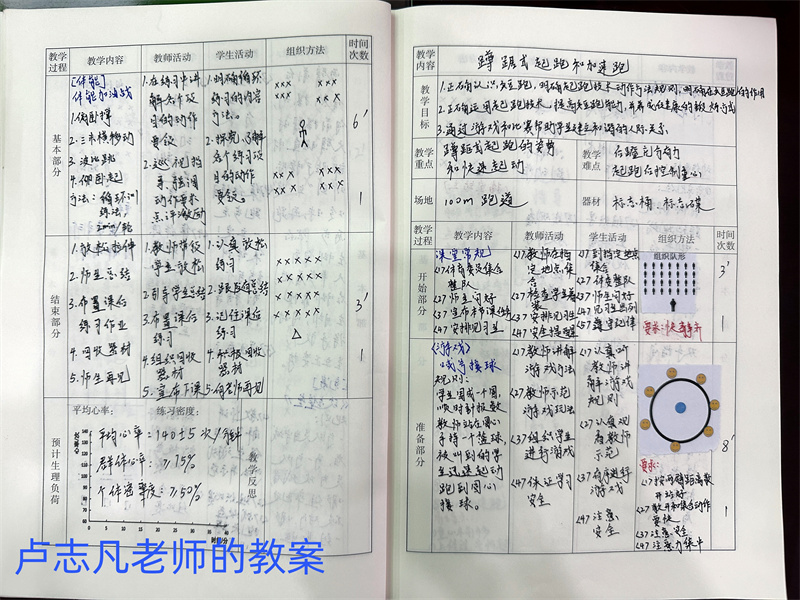 教学过程 教学内容 教师活动 学生活动 组织方法 时间次数
基本部分
[体能]
体能加油战
1.俯卧撑
2.三米横移动
3.波比跳
4.仰卧起
方法：循环训练法
1.在练习中讲解各个攻目的动作要领
2.巡视指导，强调动作要点
1.明确循环练习的内容方法。
2.探究、了解各个练习攻目的动作要领。
××× ×××
6′
1
结束部分
1.放松拉伸
2.师生总结
3.布置课后练习作业
4.回收器材
5.师生再见
1.教师带领学生放松
2.引导学生总结
3.布置课后练习
4.组织回收器材
5.宣布下课
1.认真放松练习
3.记住课后练习
4.积极回收器材
5.向老师再见
×××××
×××××
×××××
×××××
△
3′
1
预计生理负荷
平均心率： 练习密度：
平均心率：140±5 次/分钟
群体密度：≥75%
个体密度：≥50%
时间/分
教学反思
教学内容 蹲踞式起跑和加速跑
教学目标
3.通过游戏和比赛帮助学生建立和谐的人际关系。
教学重点 蹲距式起跑的姿势和快速起动
教学难点
起跑后控制重心
场地 100m 跑道
器材 标志桶、标志碟
教学过程 教学内容 教师活动 学生活动 组织方法 时间次数
开始部分
课堂常规
<1>体育委员集合整队
<2>师生问好
<3>宣布本节课内容
<4>安排见习生
<1>教师在指定地点集合
<2>检查学生着装
<3>安排见习生
<4>安全提醒
<1>到指定地点集合
<2>体委整队
<3>师生问好
<4>见习生出列
<5>遵守纪律
组织队形
要求：快、静、齐
3′
1
准备部分
《游戏》
喊号接球
规则：
学生围成一个圆，
顺时针报数
教师站在圆心
手持一个篮球，
被叫到的学
生迅速起动
跑到圆心
接球。
<1>教师讲解游戏方法
<2>教师示范游戏玩法
<3>组织学生进行游戏
<4>保证学习安全
<1>认真听教师讲解游戏规则
<2>认真观看教师示范
<3>有序进行游戏
<4>注意安全
要求：
<1>按两臂距离散开站好
<2>散开和集合动作要快
<3>注意安全
<4>注意力集中
8′
1
卢志凡老师的教案